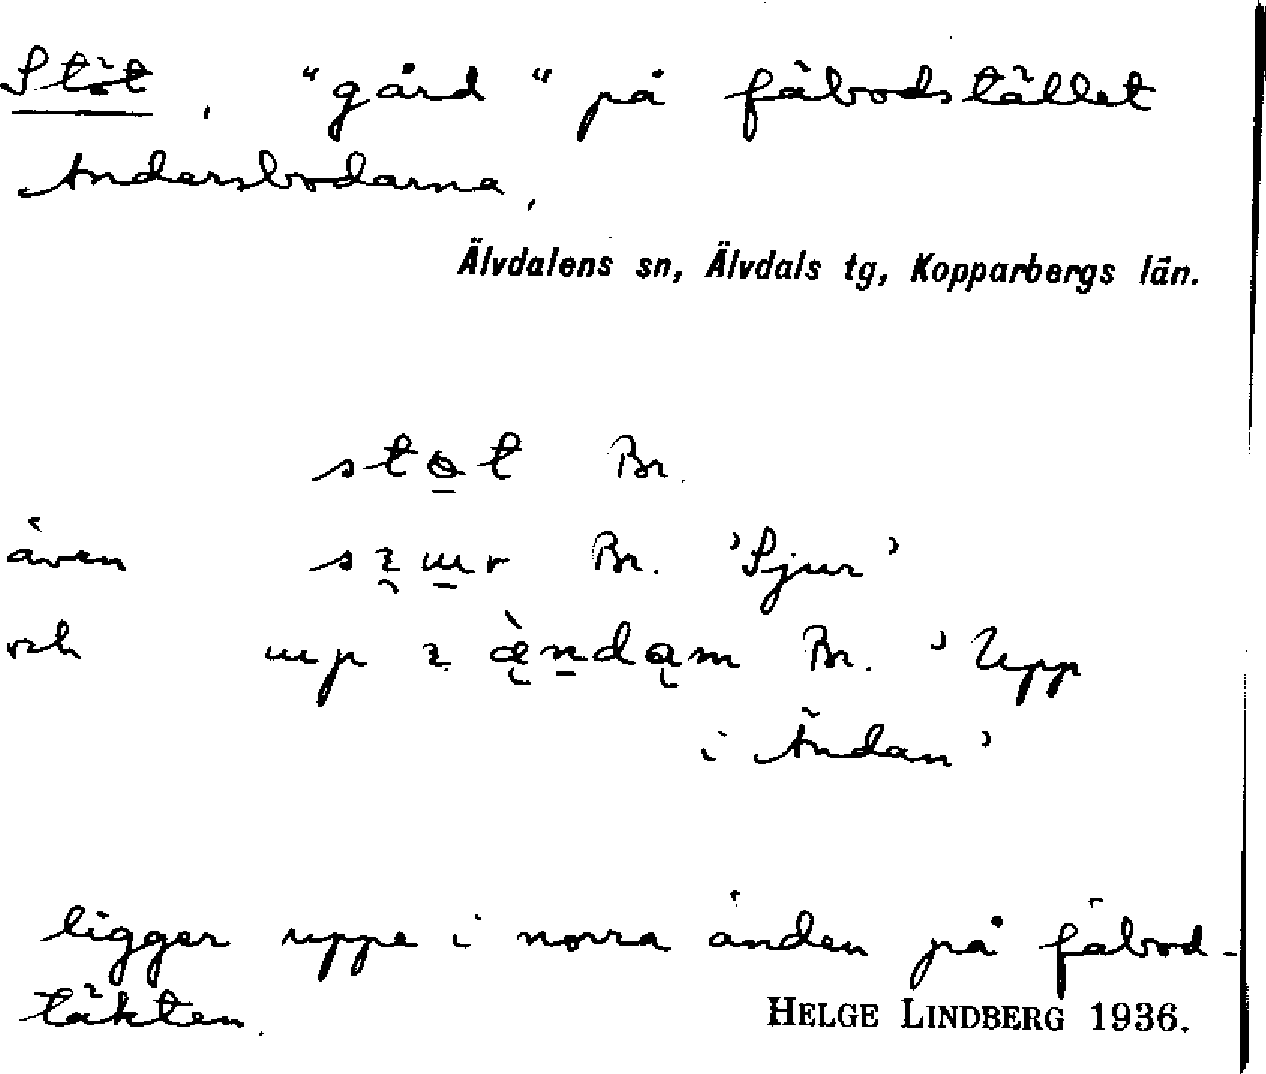 Stöt, "gård" på fäbodstället
Andersbodarna,
Älvdalens sn, Älvdals tg, Kopparbergs län.
Br.
även Br. 'Sjur'
och Br. 'Upp
i Ändan'
ligger uppe i norra änden på fäbod-
täkten.
HELGE LINDBERG 1936.